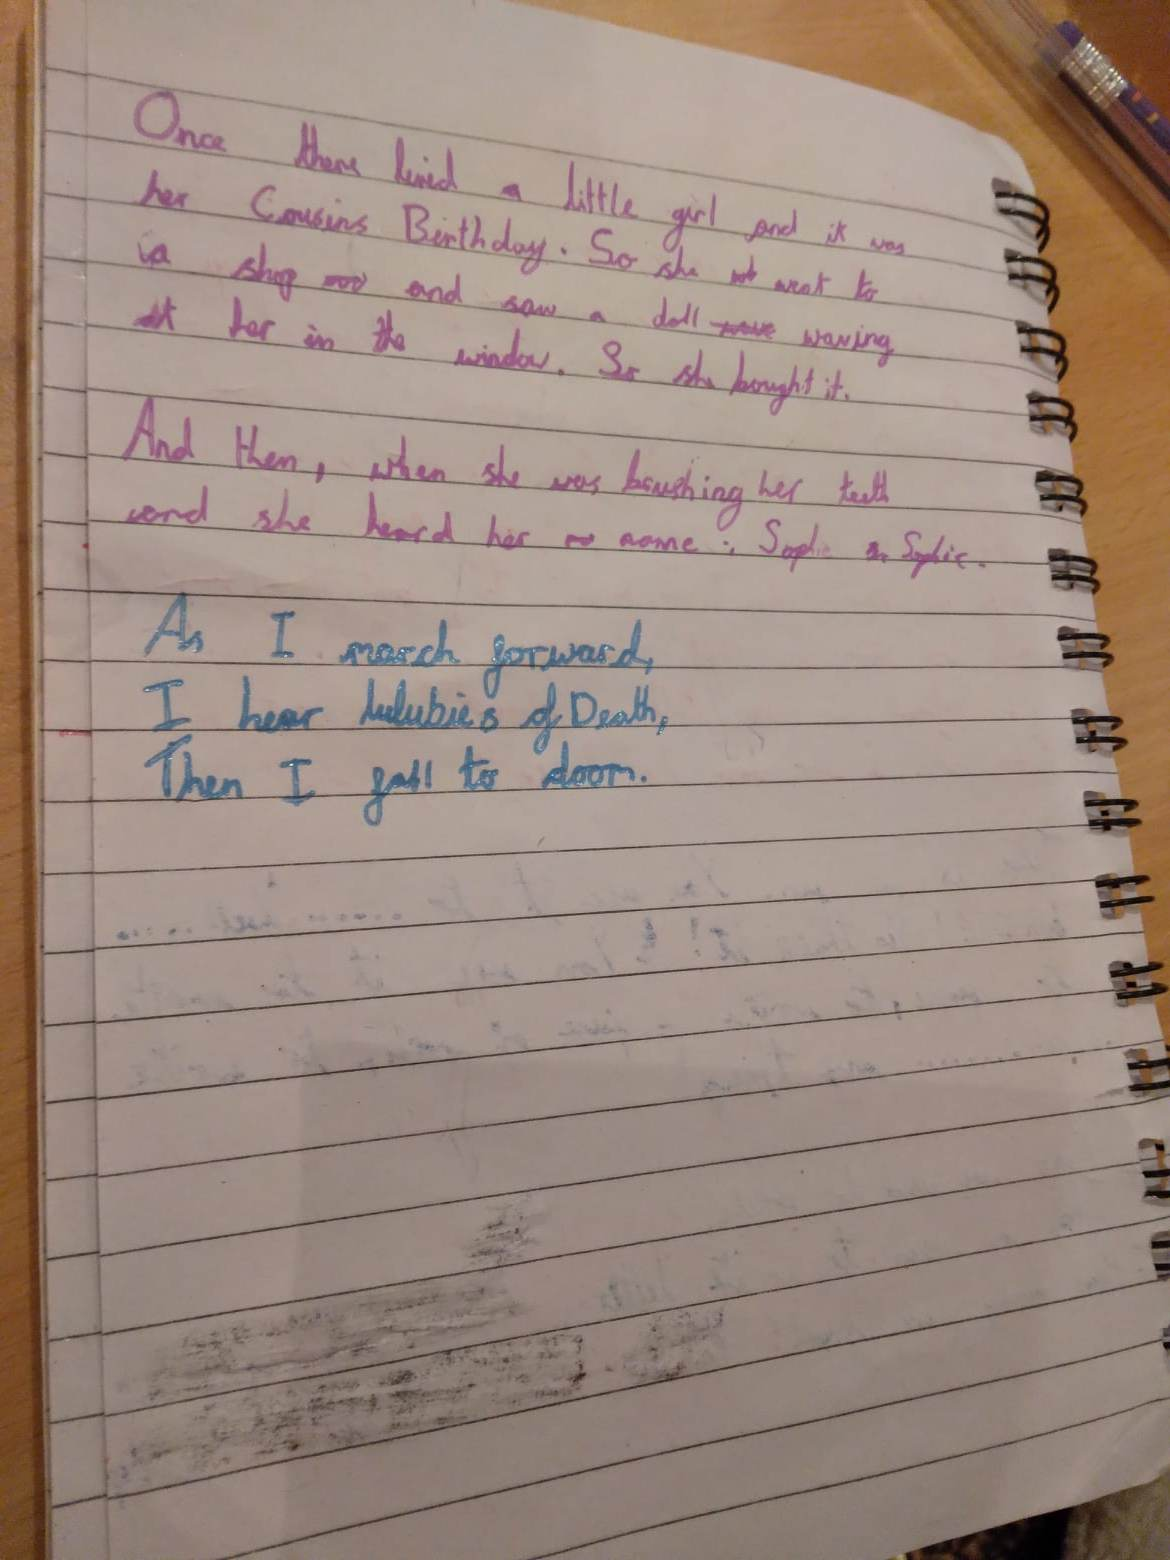 Once there lived a little girl and it was
her Cousins Birthday. So she went to
a shop and saw a doll waving
at her in the window. So she bought it.
And then, when she was brushing her teeth
and she heard her name : Sophie Sophie.
As I march forward,
I hear lulubies of Death,
Then I fall to doom.